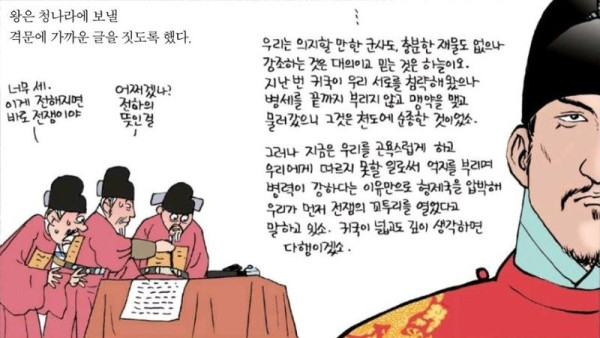 왕은 청나라에 보낼
격문에 가까운 글을 짓도록 했다.
너무 세.
이게 전해지면
바로 전쟁이야
어쩌겠나?
전하의
뜻인걸
⋮
우리는 의지할 만한 군사도, 충분한 재물도 없으나
강조하는 것은 대의이고 믿는 것은 하늘이오.
지난 번 귀국이 우리 서로를 침략해 왔으나
병세를 끝까지 부리지 않고 맹약을 맺고
물러갔으니 그것은 천도에 순종한 것이었소.
그러나 지금은 우리를 곤욕스럽게 하고
우리에게 따르지 못할 일로써 억지를 부리며
병력이 강하다는 이유만으로 형제국을 압박해
우리가 먼저 전쟁의 꼬투리를 열었다고
말하고 있소. 귀국이 넓고도 깊이 생각하면
다행이겠소.